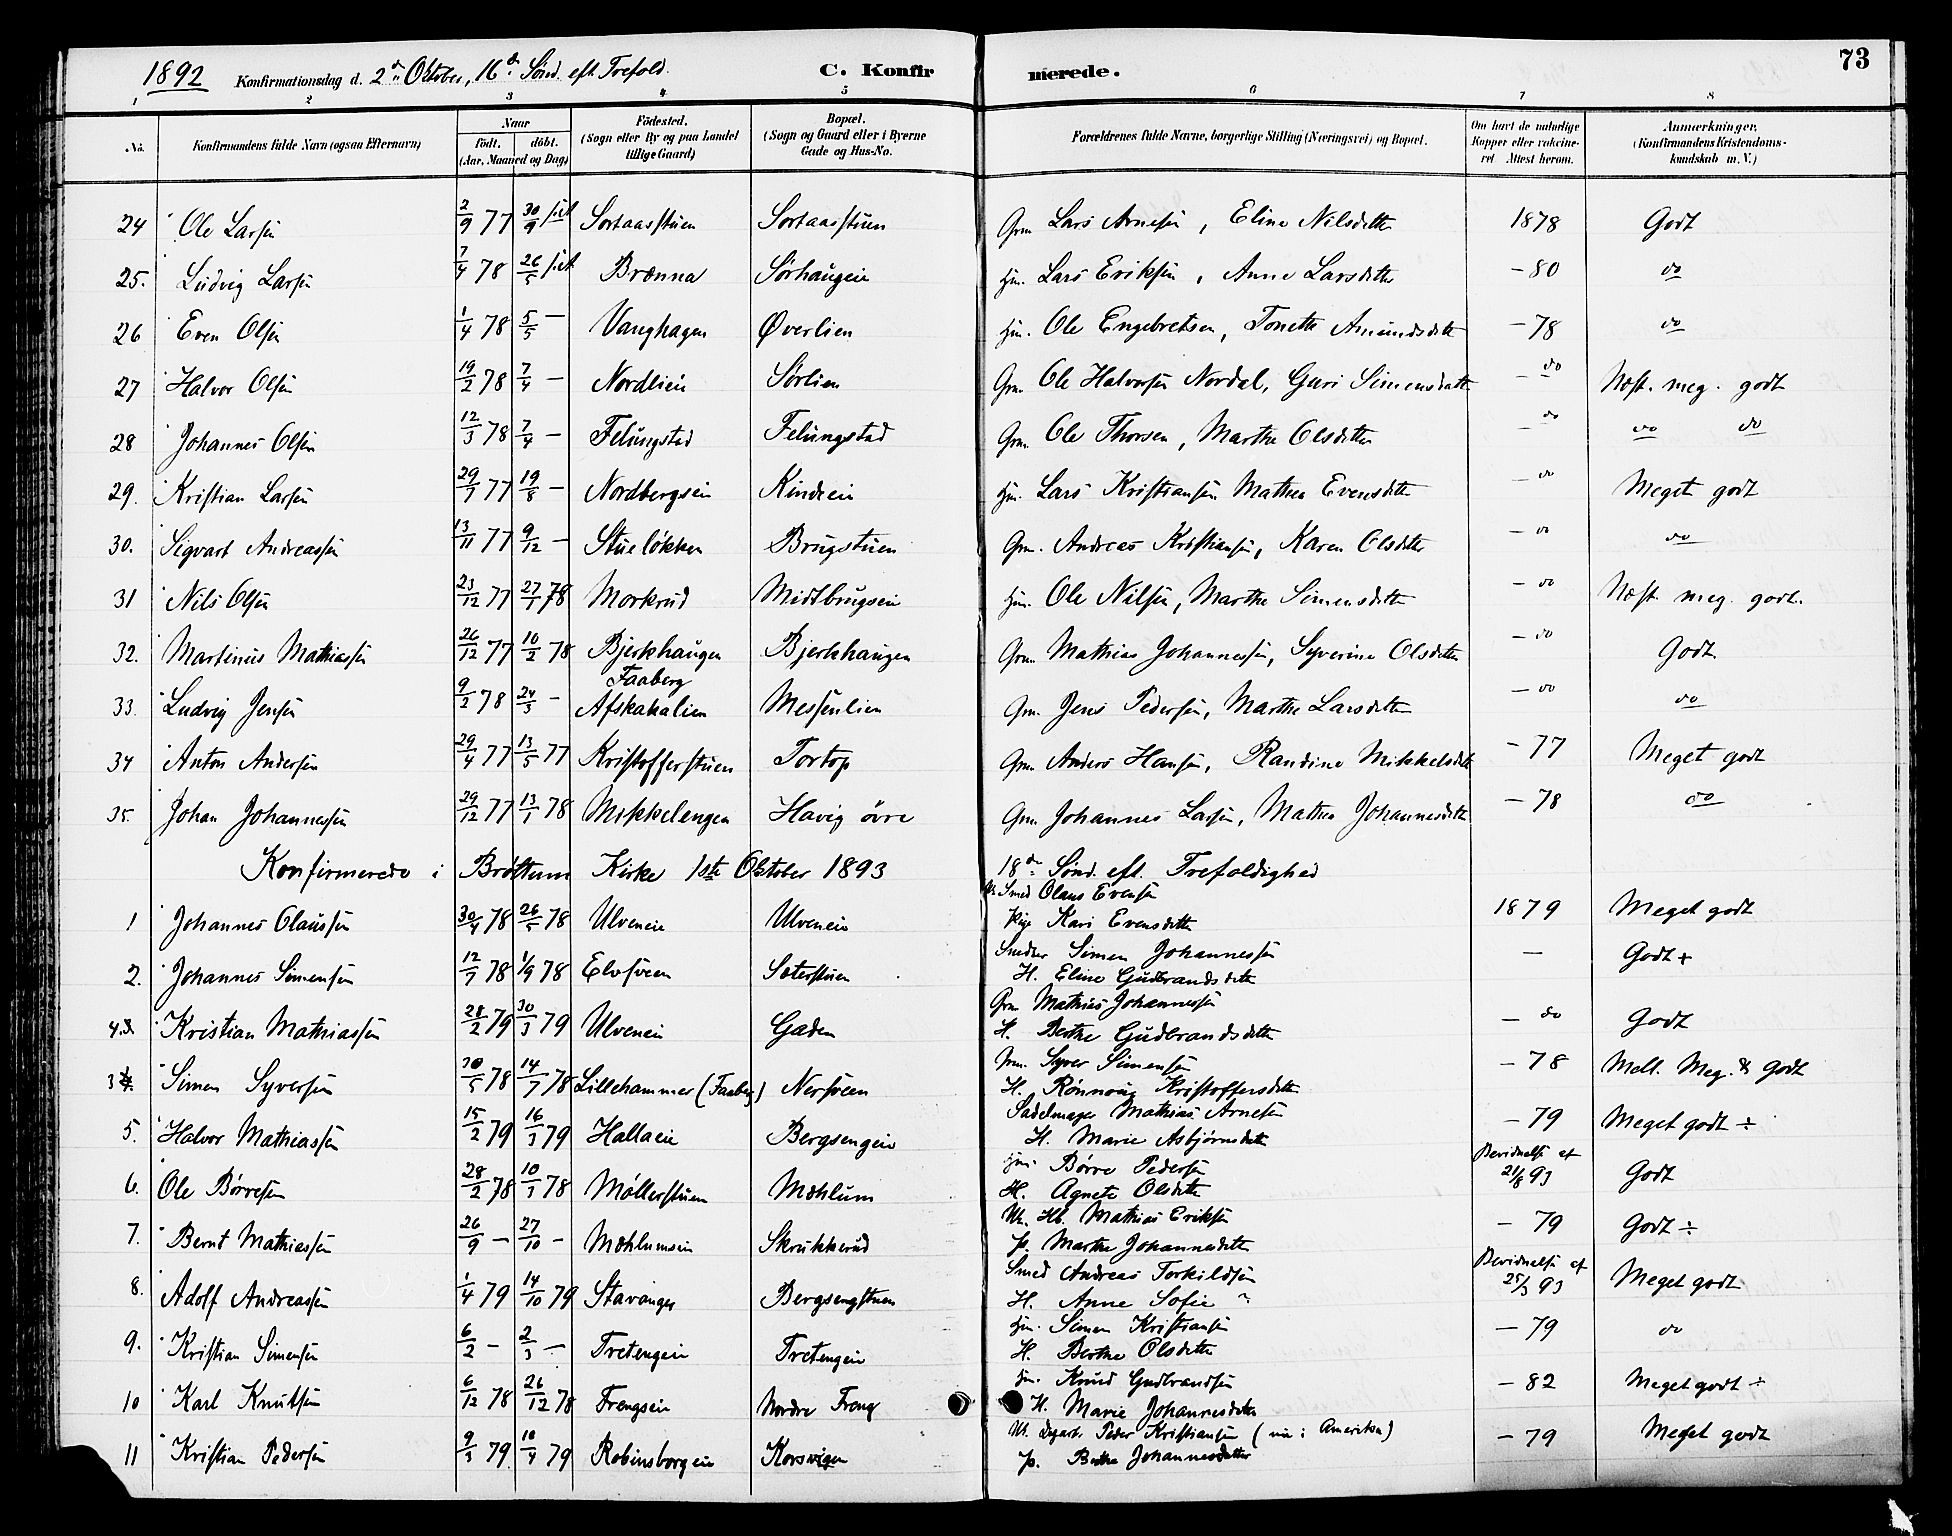 73
1892 Konfirmationsdag d. 2den Oktober, 16de Sønd. eft Trefold. C. Konfirmerede.
1 2 3 4 5 6 7 8
No. Konfirmandens fulde Navn (ogsaa Efternavn) Naar født. døbt. (Aar, Maaned og Dag) Fødested. (Sogn eller By og paa Landet tillige Gaard) Bopæl. (Sogn og Gaard eller i Byerne Gade og Hus-No. Forældrenes fulde Navne, borgerlige Stilling (Næringsvei) og Bopæl. Om havt de naturlige Kopper eller vakcineret Attest herom. Anmærkninger. (Konfirmandens Kristendomskundskab m. V.)
24 Ole Larsen 2/9 77 30/9 Sortaasstuen Sortaasstuen Grm Lars Arnesen, Eline Nilsdatter 1878 Godt
25. Ludvig Larsen 7/4 78 26/5 Brænna Sørhaugen Hjm. Lars Eriksen, Anne Larsdatter - 80 do
26 Even Olsen 1/4 78 5/5 - Vanghagen Øverlien Hjm. Ole Engebretsen, Tonette Amundsdttr - 78 do
27 Halvor Olsen 19/2 78 7/4 - Nordlien Sørlien Grm. Ole Halvorsen Nordal, Guri Simensdatter - do Næst. meg. godt
28 Johannes Olsen 12/3 78 7/4 - Felungstad Felungstad Grm. Ole Thorsen, Marthe Olsdatter - do do do
29. Kristian Larsen 29/7 77 19/8 - Nordbergseie Kindseie Hjm. Lars Kristiansen Mathea Evensdatter - do Meget godt
30. Sigvart Andreassen 13/11 77 9/12 - Stueløkken Brugstuen Grm. Andreas Kristiansen, Karen Olsdatter - do do
31 Nils Olsen 23/12 77 27/1 78 Morkrud Midtbrugseie Hjm. Ole Nilsen, Marthe Simensdatter - do Næst. meg. godt.
32. Martinus Mathiassen 26/12 77 10/2 78 Bjerkhaugen Bjerkhaugen Grm Mathias Johannessen, Syverine Olsdatter - do Godt
33. Ludvig Jensen 9/2 78 24/3 - Faaberg Afskakalien Messenlien Grm. Jens Pedersen, Marthe Larsdatter - do do
34 Anton Andersen 29/4 77 13/5 77 Kristofferstuen Tortop Grm Anders Hansen, Randine Mikkelsdtt - 77 Meget godt
35. Johan Johannessen 29/12 77 13/1 78 Mikkelengen Havig øvre Grm Johannes Larsen, Mathea Johannesdatter - 78 do
Konfirmerede i Brøttum Kirke 1ste Oktober 1893 18de Sønd. eft. Trefoldighed
1 Johannes Olaussen 30/4 78 26/5 78 Ulveneie Ulveneie Smed Olaus Evensen
Pige Kari Evensdatter 1879 Meget godt
2. Johannes Simensen 12/7 78 1/9 78 Elvsveen Sæterstuen Snedker Simen Johannessen
H. Eline Gudbrandsdatter - Godt +
4. Kristian Mathiassen 28/2 79 30/3 79 Ulveneie Gaden Grm Mathias Johannessen
H. Berthe Gudbrandsdatter - do Godt
3 Simen Syversen 30/5 78 14/7 78 Lillehammer (Faaberg) Nersveen Syver Simensen
H. Rønnoug Kristoffersdatter - 78 Mell. Meg. & godt
5. Halvor Mathiassen 15/2 79 16/3 79 Hallaeie Bergsengeie Sadelmager Mathias Arnesen
H. Marie Asbjørnsdatter - 79 Meget godt ÷
6. Ole Børresen 28/2 78 10/3 78 Møllerstuen Mæhlum Hjm. Børre Pedersen
H. Agnete Olsdatter Bevidnelse af 21/8 93 Godt
7. Bernt Mathiassen 26/9 - 27/10 - Mæhlumseie Skrukkerud Mathias Eriksen
P. Marthe Johannesdatter - 79 Godt ÷
8. Adolf Andreassen 1/4 79 14/10 79 Stavanger Bergsengstuen Smed Andreas Torkildsen
H. Anne Sofie " Bevidnelse af 25/3 93 Meget godt
9. Kristian Simensen 6/2 - 2/3 - Tretengeie Tretengeie Hjm. Simen Kristiansen
H. Berthe Olsdatter - 79 do
10 Karl Knutsen 6/12 78 26/12 78 Frengseie Nordre Freng Hjm. Knud Gudbrandsen
H. Marie Johannesdatter - 82 Meget godt ÷
11 Kristian Pedersen 9/3 79 10/4 79 Robinsborgeie Korsvigen Peder Kristiansen (nu i Amerika)
P. Berthe Johannesdatter - 79 Meget godt